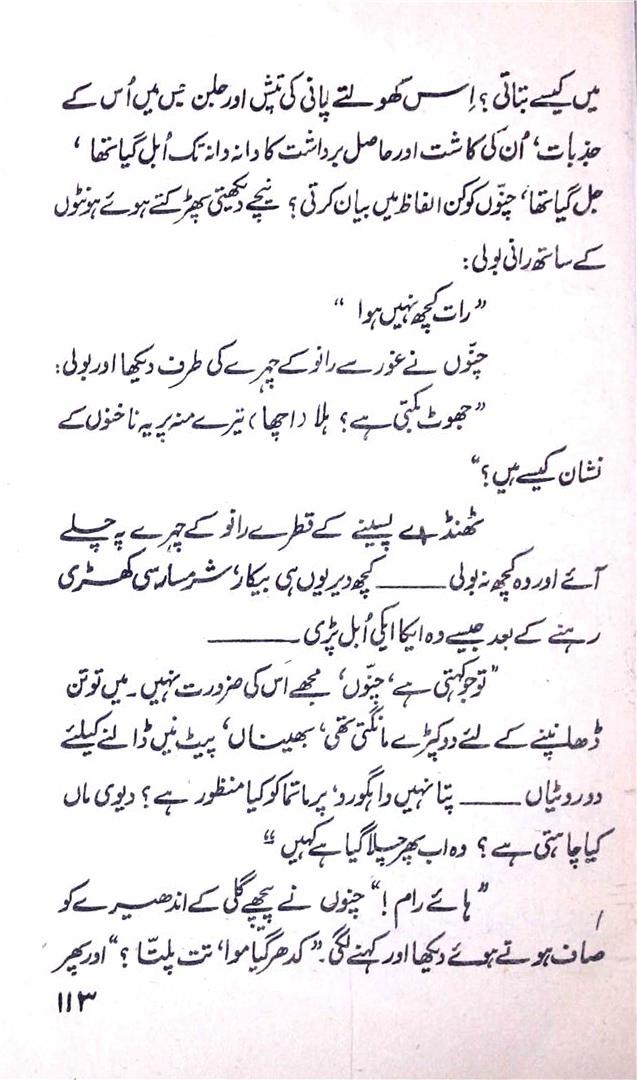 میں کیسے بتاتی؟ اِس کھولتے پانی کی تپش اور جلن جس میں اُس کے
جذبات، اُن کی کاشت اور حاصل برداشت کا دانہ دانہ تک اُبل گیا تھا،
جل گیا تھا، چنّوں کو کن الفاظ میں بیان کرتی؟ نیچے دیکھتی پھڑکتے ہوئے ہونٹوں
کے ساتھ رانی بولی:
”رات کچھ نہیں ہوا“
چنّوں نے غور سے رانو کے چہرے کی طرف دیکھا اور بولی:
”جھوٹ بکتی ہے؟ ہلا (اچھا) تیرے منہ پر یہ ناخنوں کے
نشان کیسے ہیں؟“
ٹھنڈے پسینے کے قطرے رانو کے چہرے پہ چلے
آئے اور وہ کچھ نہ بولی ـــــ کچھ دیر یوں ہی بیکار، شرمسار سی کھڑی
رہنے کے بعد جیسے وہ ایکا ایکی اُبل پڑی ـــــ
”تو جو کہتی ہے، چنّوں، مجھے اس کی ضرورت نہیں۔ میں تو تن
ڈھانپنے کے لئے دو کپڑے مانگتی تھی، بھیناں، پیٹ میں ڈالنے کیلئے
دو روٹیاں ـــــ پتا نہیں واہگورو، پرماتما کو کیا منظور ہے؟ دیوی ماں
کیا چاہتی ہے؟ وہ اب پھر چلا گیا ہے کہیں“
”ہائے رام!“ چنوں نے پیچھے گلی کے اندھیرے کو
صاف ہوتے ہوئے دیکھا اور کہنے لگی۔ ”کدھر گیا موا، تت پلتّا؟“ اور پھر
۱۱۳